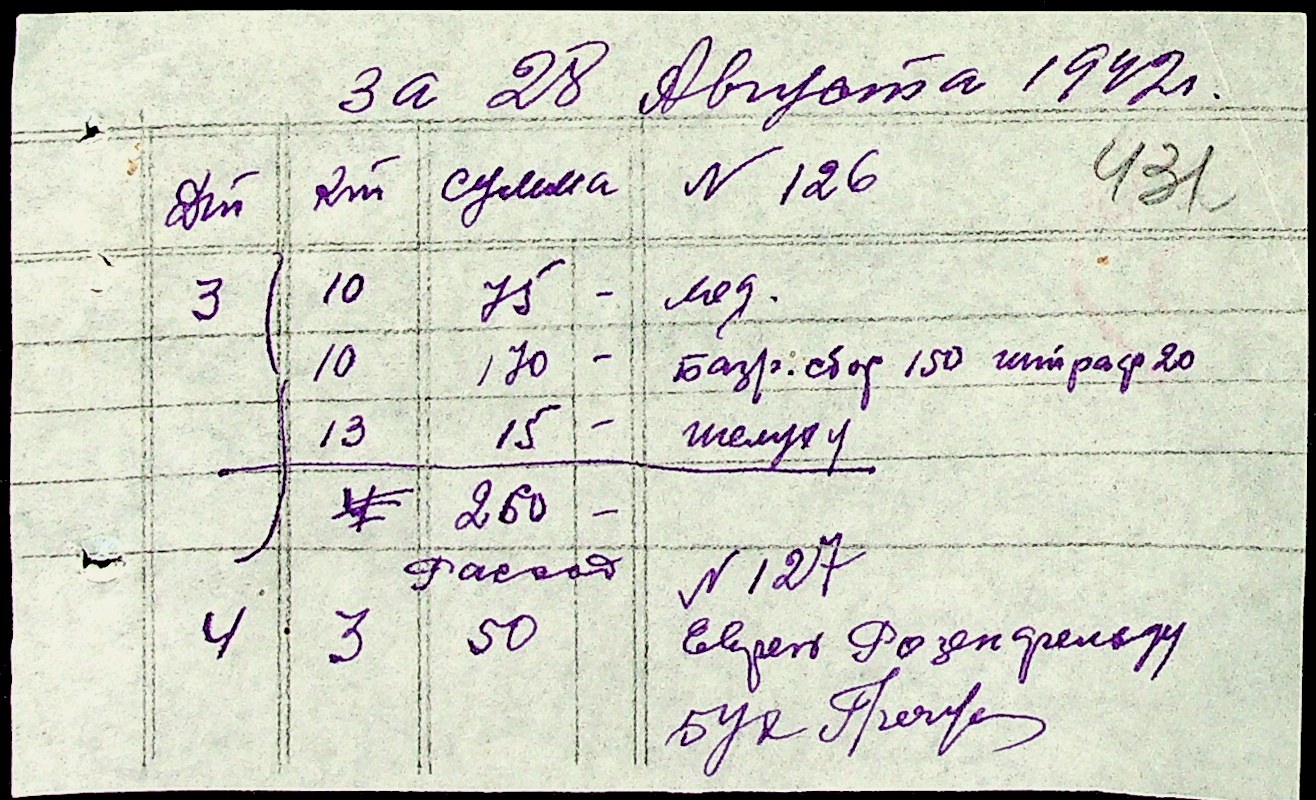 за 28 Августа 1942г.
431
Дт Кт сумма N 126
3 10 75 - мед.
10 170 - Базр. сбор 150 штраф 20
13 15 - шелуху
260 -
Расход N 127
4 3 50 Еврею Розенфельду
Бух